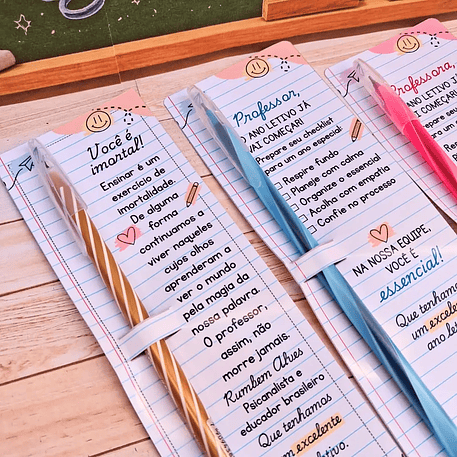 Você é
imortal!
Ensinar é um
exercício de
imortalidade.
De alguma
forma
continuamos a
viver naqueles
cujos olhos
aprenderam a
ver o mundo
pela magia da
nossa palavra.
O professor,
assim, não
morre jamais.
Rumbem Alves
Psicanalista e
educador brasileiro
Que tenhamos
um excelente
letivo.
Professor,
O ANO LETIVO JÁ
VAI COMEÇAR!
Prepare seu checklist
para um ano especial:
Respire fundo
Planeje com calma
Organize o essencial
Acolha com empatia
Confie no processo
NA NOSSA EQUIPE,
VOCÊ É
essencial!
Que tenhamos
um excelente
ano letivo
Professora,
O ANO LETIVO JÁ
VAI COMEÇAR!
Prepare seu
para um ano